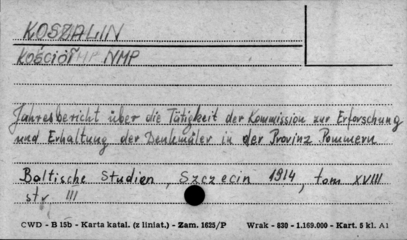 KOSZALIN
Kościół NMP
Jahresbericht über die Tütigkeit der Kommission zur Erforschung
und Erhaltung der Denkmüler in der Provinz Pommern
Baltische Studien, Szczecin 1914, tom XVIII
str III
CWD - B 15b - Karta katal. (z liniat.) - Zam. 1625/P Wrak - 830 - 1.169.000 - Kart. 5 kl. A1